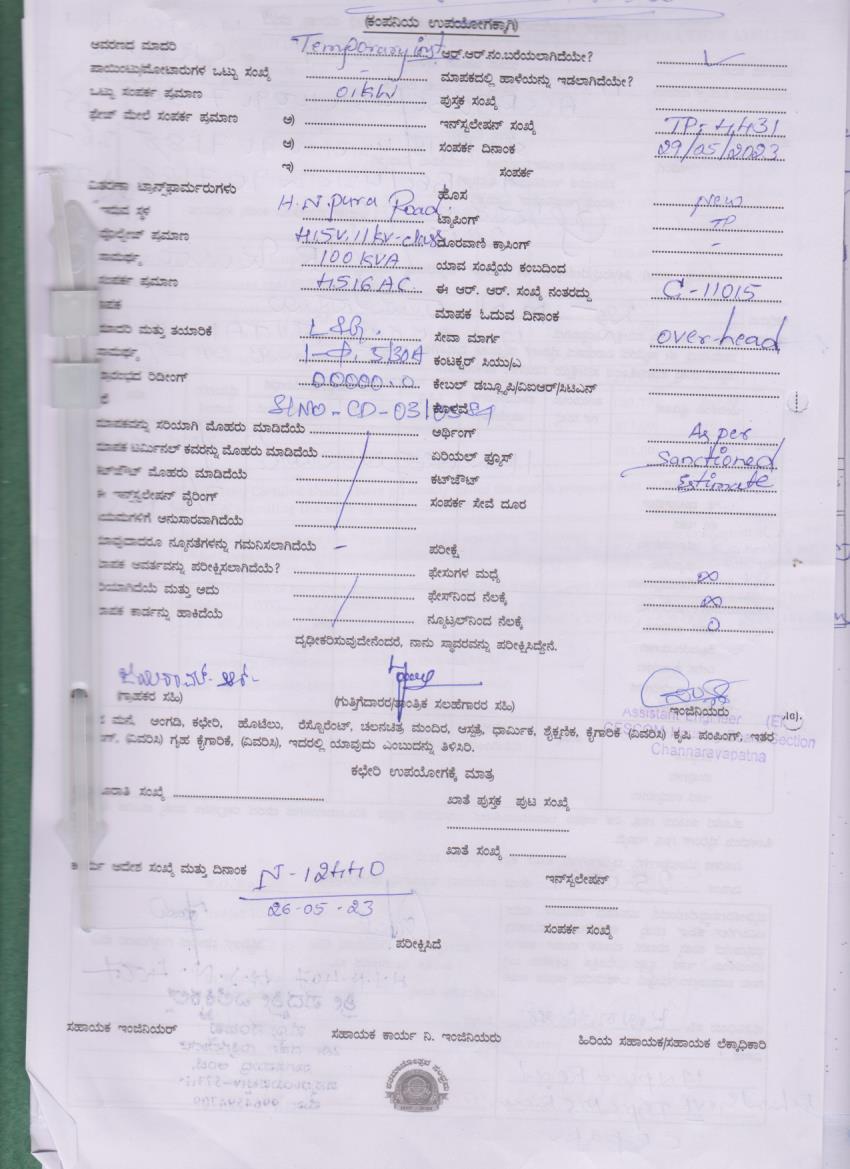 (ಕಂಪನಿಯ ಉಪಯೋಗಕ್ಕಾಗಿ)
ಆವರಣದ ಮಾದರಿ Temporary inst ಆರ್.ಆರ್.ನಂ.ಬರೆಯಲಾಗಿದೆಯೇ? ✓
ಪಾಯಿಂಟು/ಮೋಟಾರುಗಳ ಒಟ್ಟು ಸಂಖ್ಯೆ - ಮಾಪಕದಲ್ಲಿ ಹಾಳೆಯನ್ನು ಇಡಲಾಗಿದೆಯೇ?
ಒಟ್ಟು ಸಂಪರ್ಕ ಪ್ರಮಾಣ 01KW ಪುಸ್ತಕ ಸಂಖ್ಯೆ
ಫೇಜ್ ಮೇಲೆ ಸಂಪರ್ಕ ಪ್ರಮಾಣ ಅ) ಇನ್‌ಸ್ಟಲೇಷನ್ ಸಂಖ್ಯೆ TP-4431
ಆ) ಸಂಪರ್ಕ ದಿನಾಂಕ 29/05/2023
ಇ) ಸಂಪರ್ಕ
ವಿತರಣಾ ಟ್ರಾನ್ಸ್‌ಫಾರ್ಮರುಗಳು ಹೊಸ New
ಇರುವ ಸ್ಥಳ H.N.pura Road. ಟ್ಯಾಪಿಂಗ್ TP
ವೋಲ್ಟೇಜ್ ಪ್ರಮಾಣ 415V, 11kv-class ದೂರವಾಣಿ ಕ್ರಾಸಿಂಗ್ -
ಸಾಮರ್ಥ್ಯ 100 KVA ಯಾವ ಸಂಖ್ಯೆಯ ಕಂಬದಿಂದ
ಸಂಪರ್ಕ ಪ್ರಮಾಣ 4516 AC ಈ ಆರ್. ಆರ್. ಸಂಖ್ಯೆ ನಂತರದ್ದು C-11015
ಮಾಪಕ ಮಾಪಕ ಓದುವ ದಿನಾಂಕ
ಮಾದರಿ ಮತ್ತು ತಯಾರಿಕೆ ಸೇವಾ ಮಾರ್ಗ overhead
ಸಾಮರ್ಥ್ಯ 1-Φ, 5/30A ಕಂಟಕ್ಟರ್ ಸಿಯು/ಎ
ಪ್ರಾರಂಭದ ರಿಡೀಂಗ್ 00000.0 ಕೇಬಲ್ ಡಬ್ಲ್ಯೂಪಿ/ವಿಐಆರ್/ಸಿಟಿಎನ್
ಕೊಳವೆ
ಮಾಪಕವನ್ನು ಸರಿಯಾಗಿ ಮೊಹರು ಮಾಡಿದೆಯೆ ಅರ್ಥಿಂಗ್ As per
ಮಾಪಕ ಟರ್ಮಿನಲ್ ಕವರನ್ನು ಮೊಹರು ಮಾಡಿದೆಯೆ ಏರಿಯಲ್ ಫ್ಯೂಸ್ Sanctioned
ಕಟ್‌ಔಟ್ ಮೊಹರು ಮಾಡಿದೆಯೆ ಕಟ್‌ಔಟ್ Estimate
ಈ ಇನ್‌ಸ್ಟಲೇಷನ್ ವೈರಿಂಗ್ ಸಂಪರ್ಕ ಸೇವೆ ದೂರ
ನಿಯಮಗಳಿಗೆ ಅನುಸಾರವಾಗಿದೆಯೆ
ಯಾವುದಾದರೂ ನ್ಯೂನತೆಗಳನ್ನು ಗಮನಿಸಲಾಗಿದೆಯೆ - ಪರೀಕ್ಷೆ
ಮಾಪಕ ಆವರ್ತವನ್ನು ಪರೀಕ್ಷಿಸಲಾಗಿದೆಯೆ? ಫೇಸುಗಳ ಮಧ್ಯೆ ∞
ಸರಿಯಾಗಿದೆಯೆ ಮತ್ತು ಅದು ಫೇಸ್‌ನಿಂದ ನೆಲಕ್ಕೆ ∞
ಮಾಪಕ ಕಾರ್ಡನ್ನು ಹಾಕಿದೆಯೆ ನ್ಯೂಟ್ರಲ್‌ನಿಂದ ನೆಲಕ್ಕೆ 0
ದೃಢೀಕರಿಸುವುದೇನೆಂದರೆ, ನಾನು ಸ್ಥಾವರವನ್ನು ಪರೀಕ್ಷಿಸಿದ್ದೇನೆ.
(ಗ್ರಾಹಕರ ಸಹಿ) (ಗುತ್ತಿಗೆದಾರರ/ತಾಂತ್ರಿಕ ಸಲಹೆಗಾರರ ಸಹಿ) ಇಂಜಿನಿಯರು
Assistant Engineer (El).
ಮನೆ, ಅಂಗಡಿ, ಕಛೇರಿ, ಹೊಟೇಲು, ರೆಸ್ಟೊರೆಂಟ್, ಚಲನಚಿತ್ರ ಮಂದಿರ, ಆಸ್ಪತ್ರೆ, ಧಾರ್ಮಿಕ, ಶೈಕ್ಷಣಿಕ, ಕೈಗಾರಿಕೆ (ವಿವರಿಸಿ) ಕೃಷಿ ಪಂಪಿಂಗ್, ಇತರ
(ವಿವರಿಸಿ) ಗೃಹ ಕೈಗಾರಿಕೆ, (ವಿವರಿಸಿ), ಇದರಲ್ಲಿ ಯಾವುದು ಎಂಬುದನ್ನು ತಿಳಿಸಿರಿ. Section
Channarayapatna
ಕಛೇರಿ ಉಪಯೋಗಕ್ಕೆ ಮಾತ್ರ
ಸಂಖ್ಯೆ ಖಾತೆ ಪುಸ್ತಕ ಪುಟ ಸಂಖ್ಯೆ
ಖಾತೆ ಸಂಖ್ಯೆ
ಕಾರ್ಯ ಆದೇಶ ಸಂಖ್ಯೆ ಮತ್ತು ದಿನಾಂಕ N-12440 ಇನ್‌ಸ್ಟಲೇಷನ್
26-05-23 ಸಂಪರ್ಕ ಸಂಖ್ಯೆ
ಪರೀಕ್ಷಿಸಿದೆ
ಸಹಾಯಕ ಇಂಜಿನಿಯರ್ ಸಹಾಯಕ ಕಾರ್ಯ ನಿ. ಇಂಜಿನಿಯರು ಹಿರಿಯ ಸಹಾಯಕ/ಸಹಾಯಕ ಲೆಕ್ಕಾಧಿಕಾರಿ